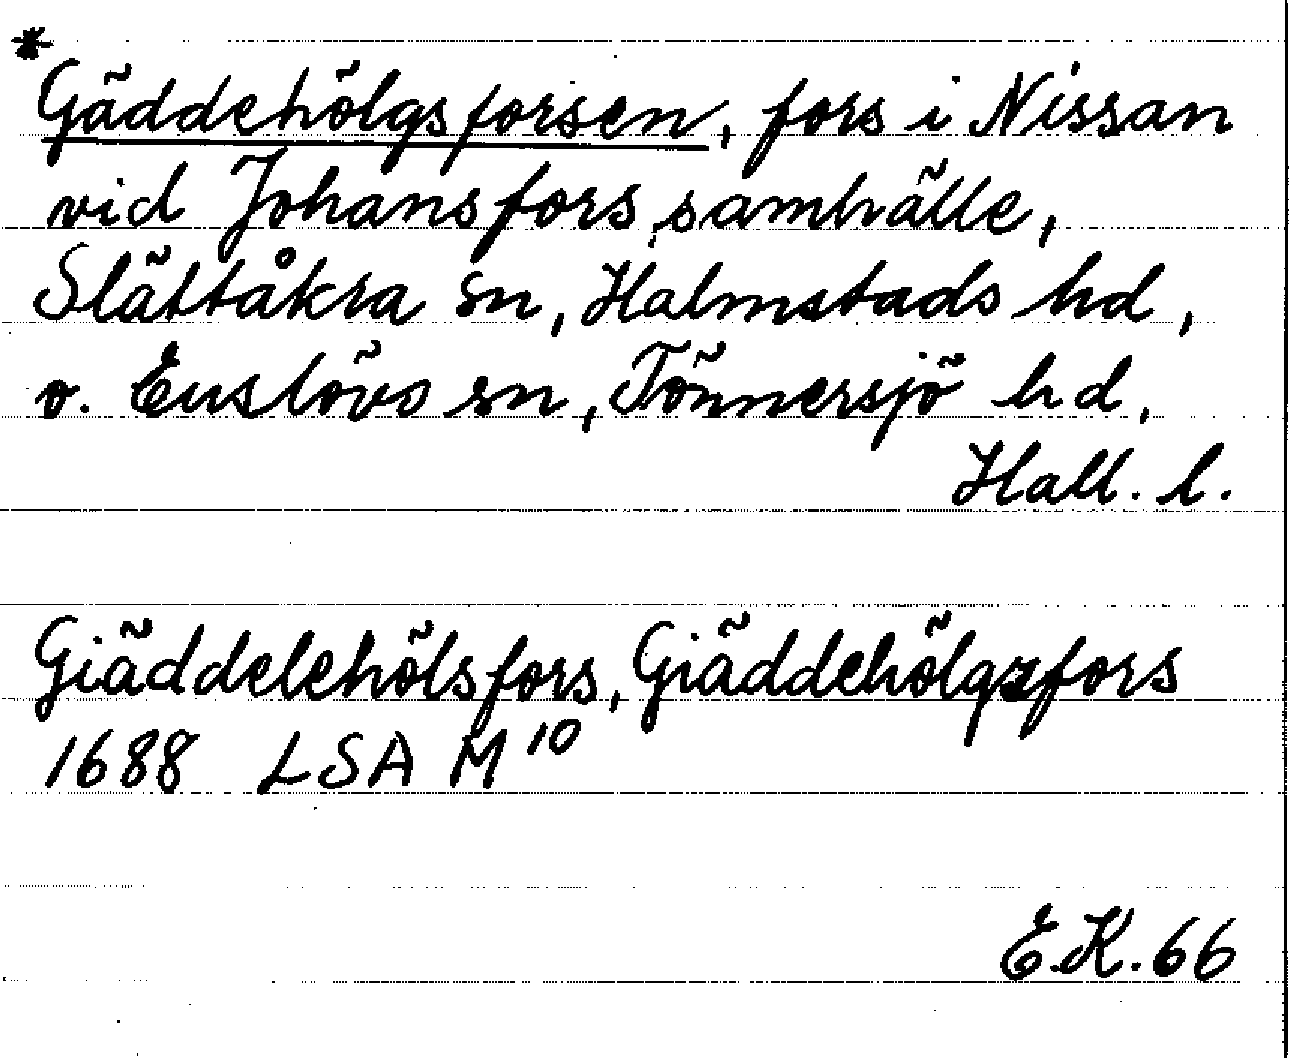 *
Gäddehölgsforsen, fors i Nissan
vid Johansfors samhälle,
Slättåkra sn, Halmstads hd,
o. Enslövs sn, Tönnersjö hd,
Hall. l.
Giäddelehölsfors, Giäddehölgzfors
1688 LSA M10
E.K. 66